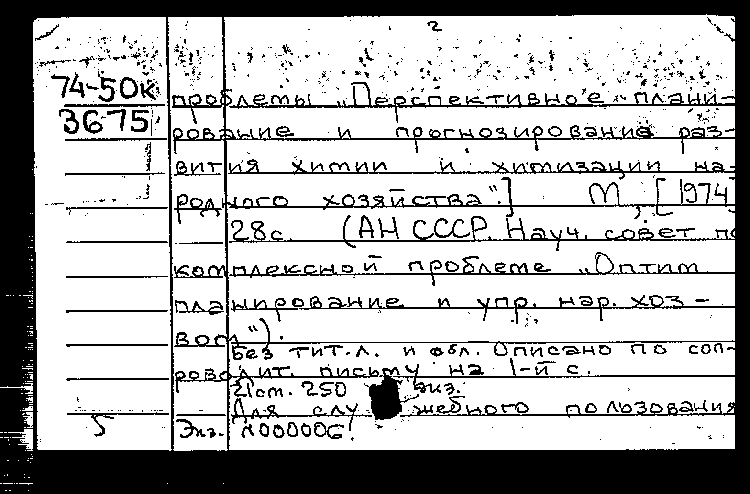 2
74-50к
3675
проблемы „Перспективное плани-
рование и прогнозирования раз-
вития химии и химизации на-
родного хозяйства".] М, [1974]
28с. (АН СССР. Науч. совет по
комплексной проблеме „Оптим
планирование и упр. нар. хоз-
вом").
Без тит.л. и обл. Описано по соп-
роводит. письму на 1-й с.
21см. 250 экз.
Для служебного пользования
5 Экз. N000006.